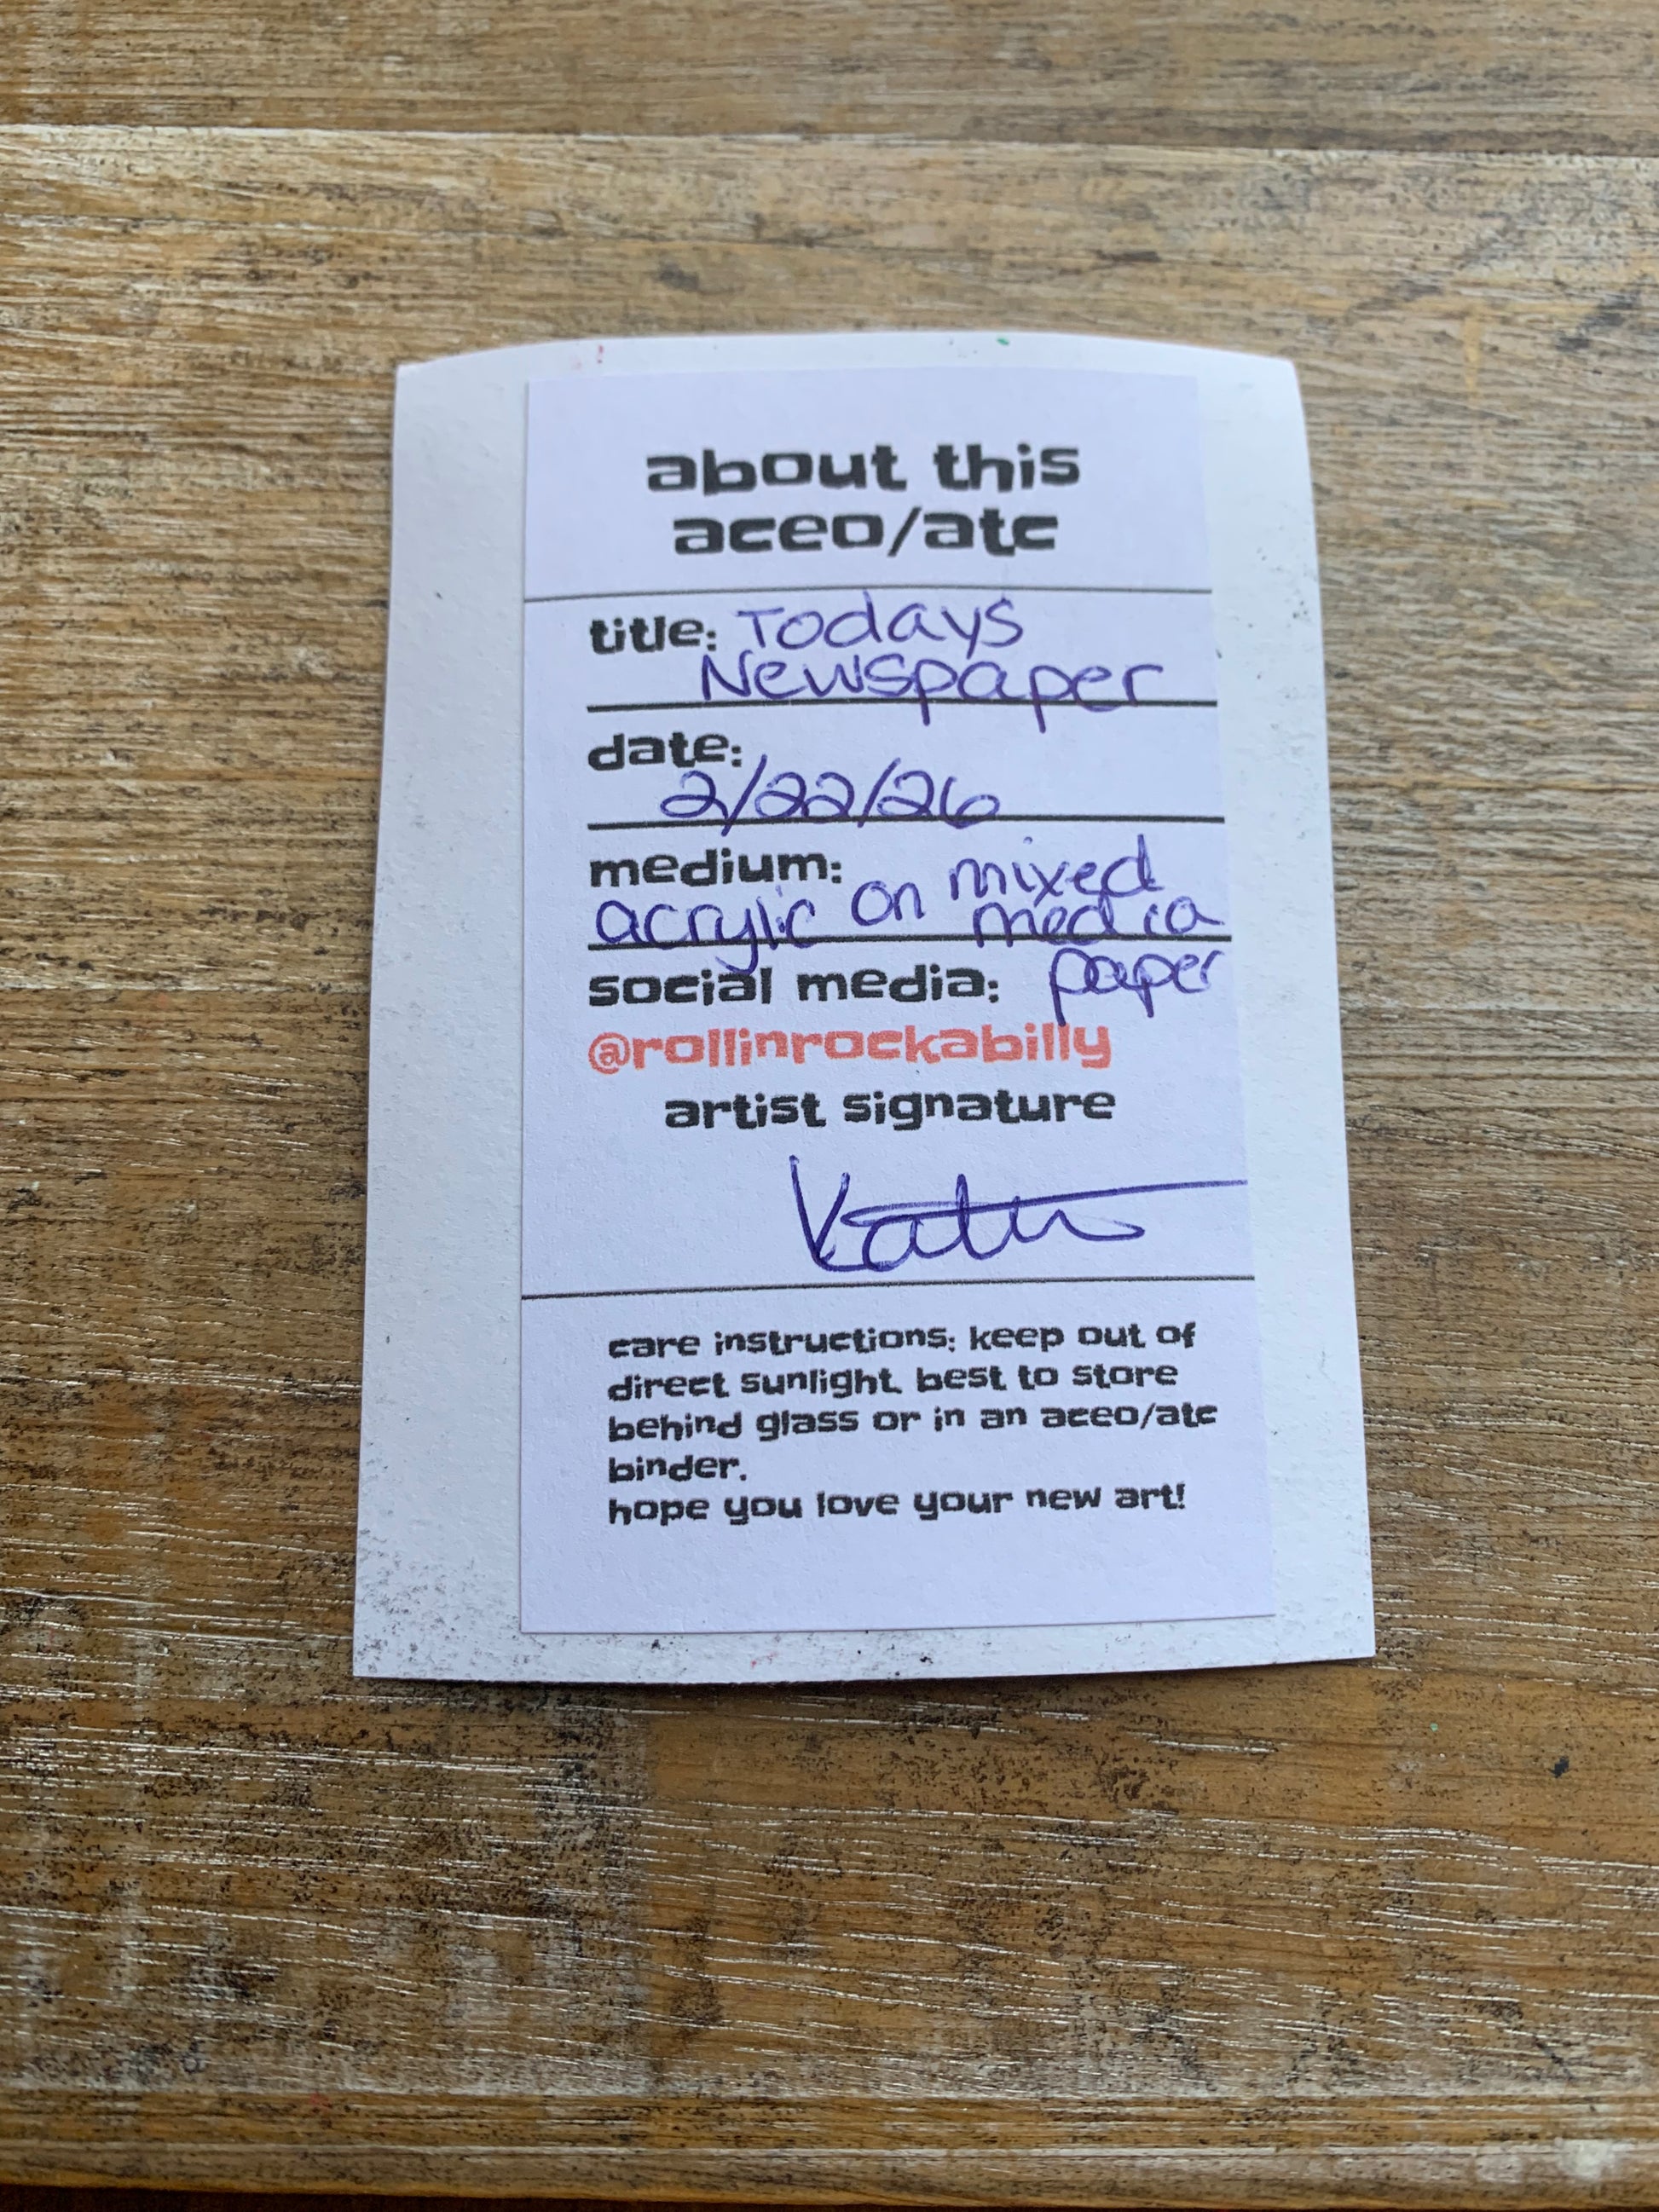 about this
aceo/atc
title: Todays
Newspaper
date:
2/22/26
medium: mixed
acrylic on media
social media: paper
@rollinrockabilly
artist signature
care instructions: keep out of
direct sunlight. best to store
behind glass or in an aceo/atc
binder.
hope you love your new art!